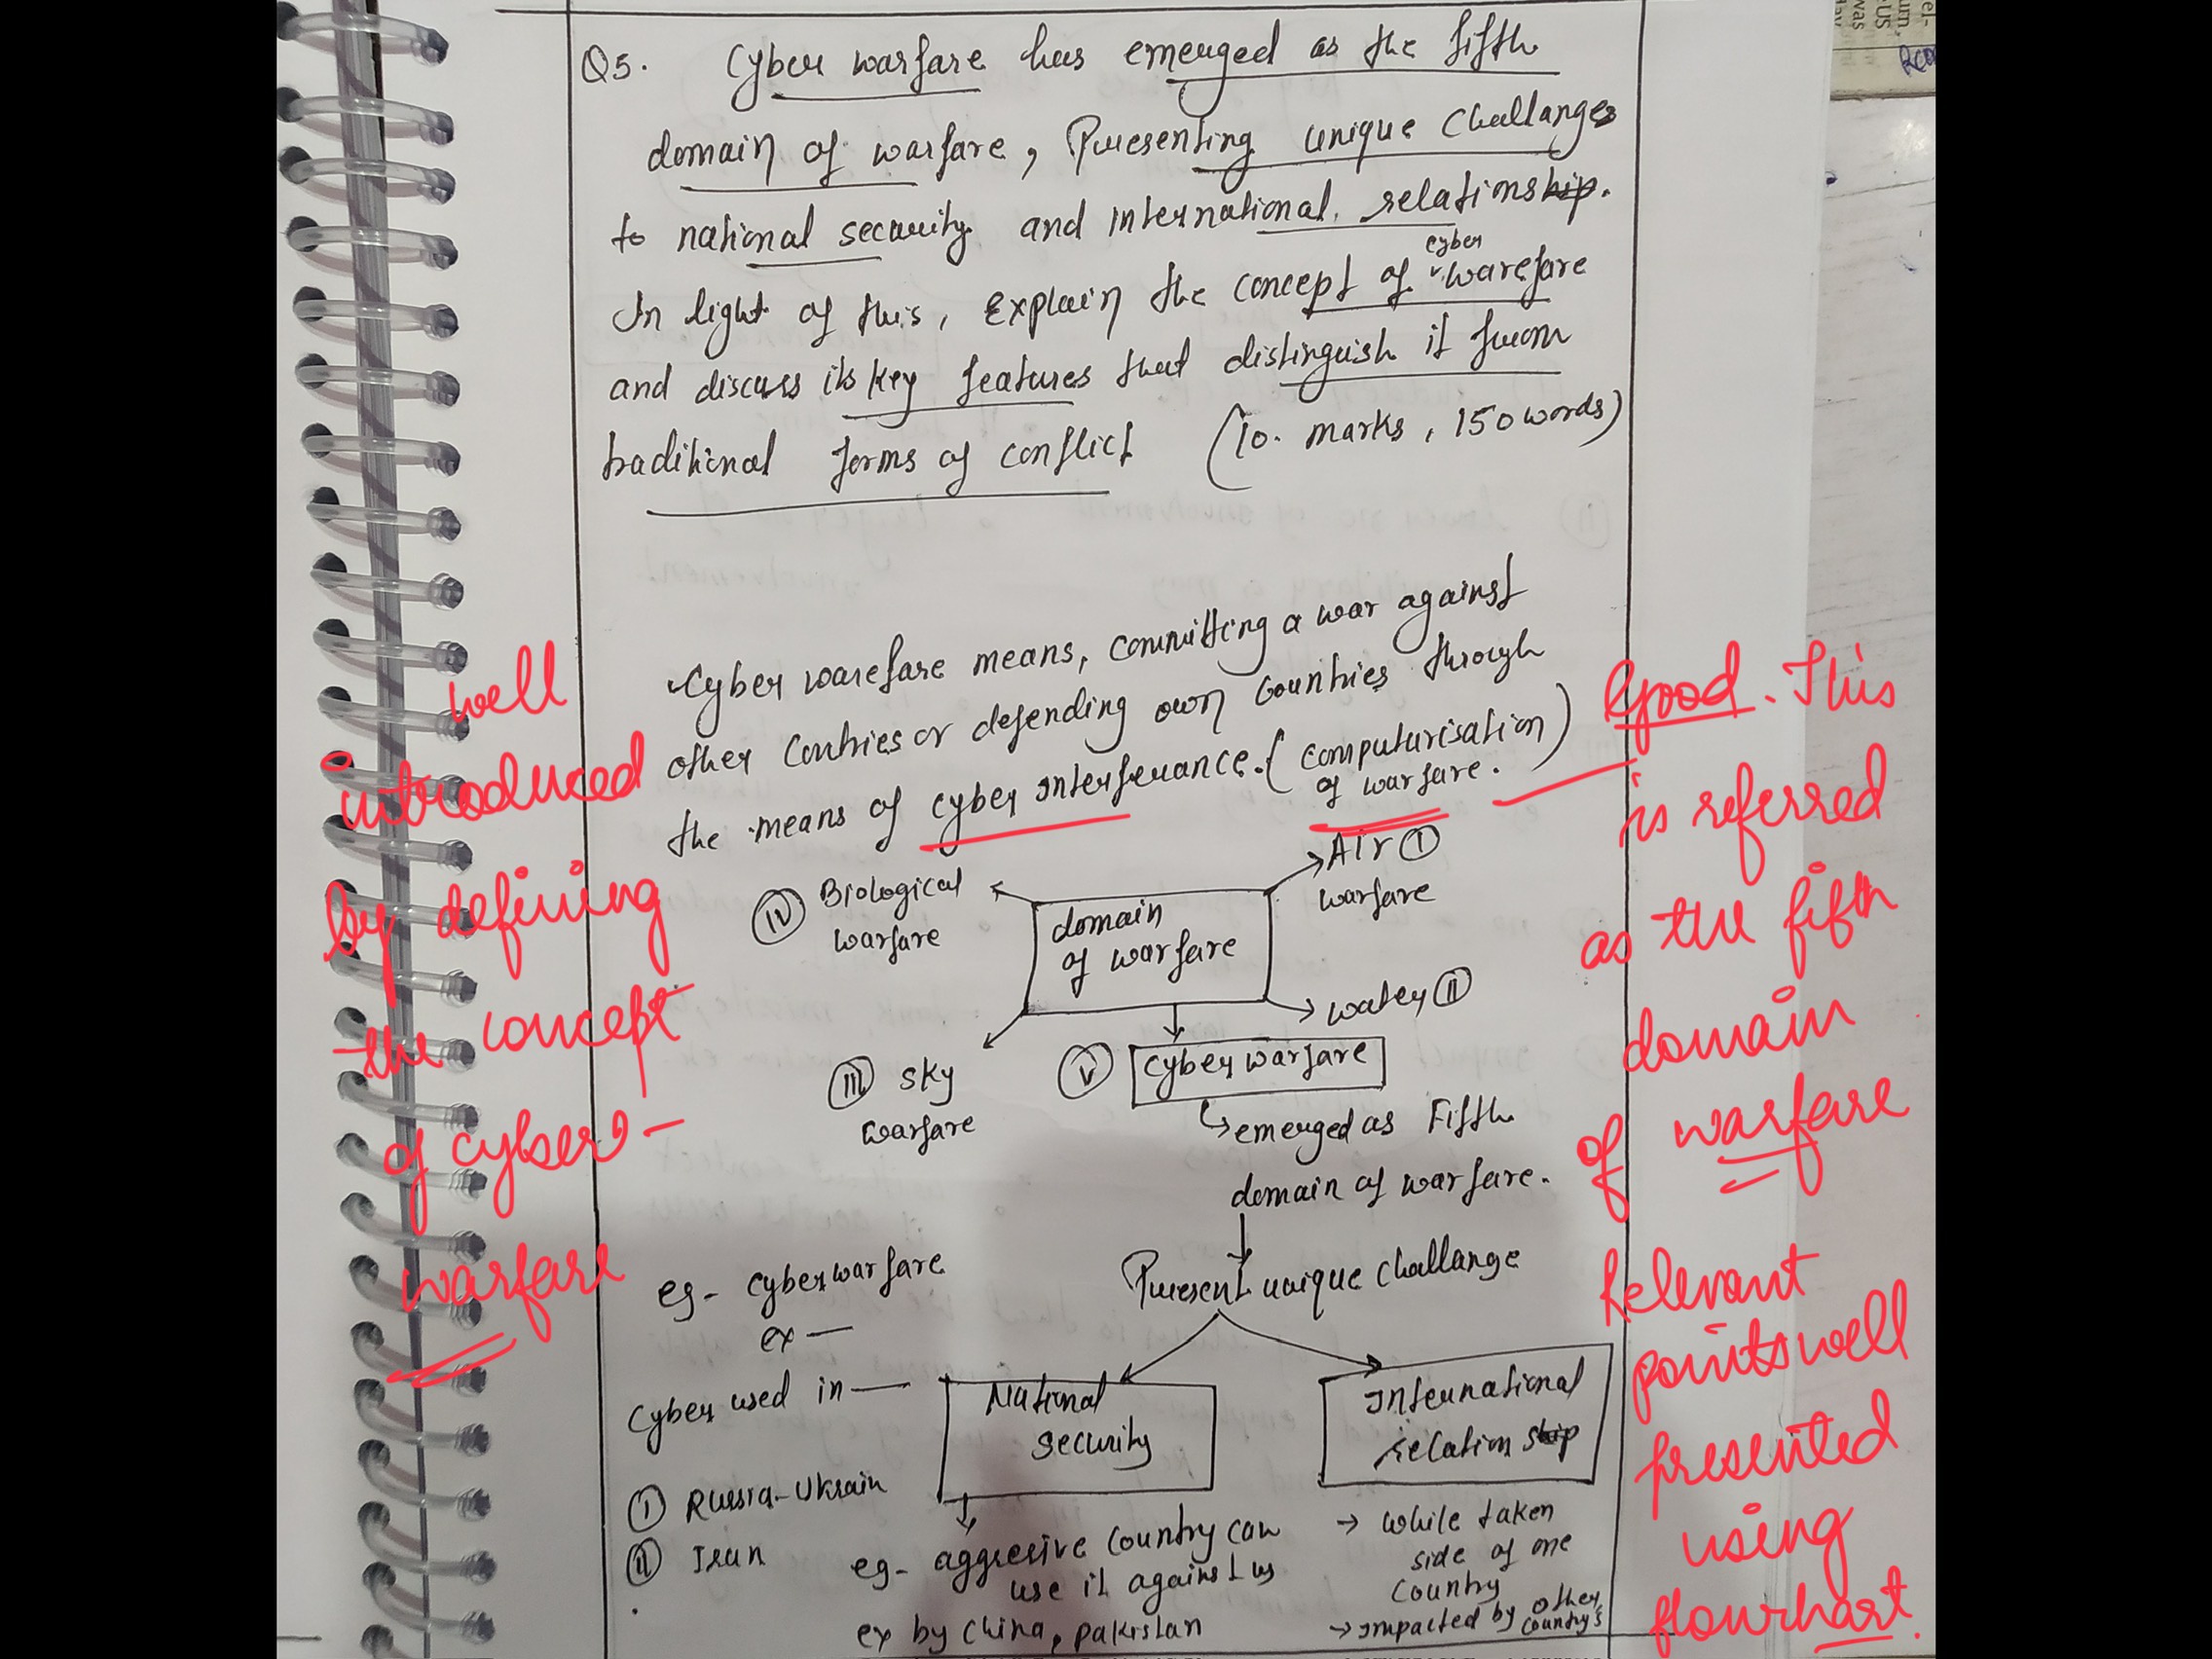 Q5. Cyber warfare has emerged as the fifth
domain of warfare, Presenting unique Challanges
to national security and international relationship.
In light of this, explain the concept of cyber warefare
and discuss its key features that distinguish it from
traditional forms of conflict (10. marks, 150 words)
Cyber warefare means, committing a war against
other Contries or defending own Countries through
the means of cyber interferance. (computurisation
of warfare.)
Air I
warfare
IV Biological
warfare
domain
of warfare
water II
III Sky
warfare
V Cyber warfare
emerged as Fifth
domain of warfare.
Present unique challange
eg- Cyberwarfare
ex —
Cyber used in —
I Russia-Ukrain
II Iran
National
Security
eg- aggresive Country can
use it against us
ex by China, pakistan
International
relation ship
→ while taken
side of one
Country
→ impacted by other
country's
well
introduced
by defining
the concept
of cyber-
warfare
Good. This
is referred
as the fifth
domain
of warfare
Relevant
points well
presented
using
flowchart.